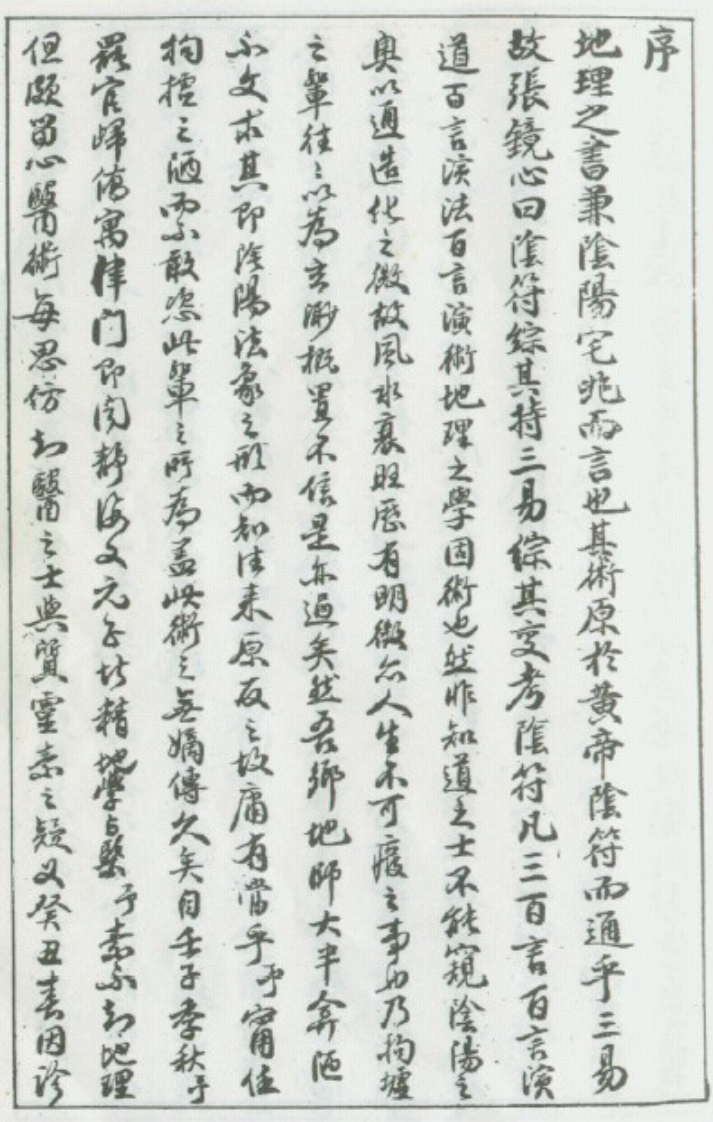 序
地理之書兼陰陽宅兆而言也其術原於黃帝陰符而通乎三易
故張鏡心曰陰符綜其持三易綜其变考陰符凡三百言百言演
道百言演法百言演術地理之學固術也然非知道之士不能窺陰陽之
奧以通造化之微故風水衰旺歷有明徵亦人生不可廢之事也乃拘墟
之輩往々以為玄渺概置不信是亦過矣然吾鄉地師大半弇陋
不文求其即陰陽法象之形而知往来原反之故庸有當乎予甯任
拘墟之陋而不敢恣此輩之所為盖此術之無嫡傳久矣自壬子季秋予
罷官歸僑寓律门即闻靜海文元
精地學与醫予素不知地理
但頗留心醫術每思仿知醫之士與質靈素之疑义癸丑春因診